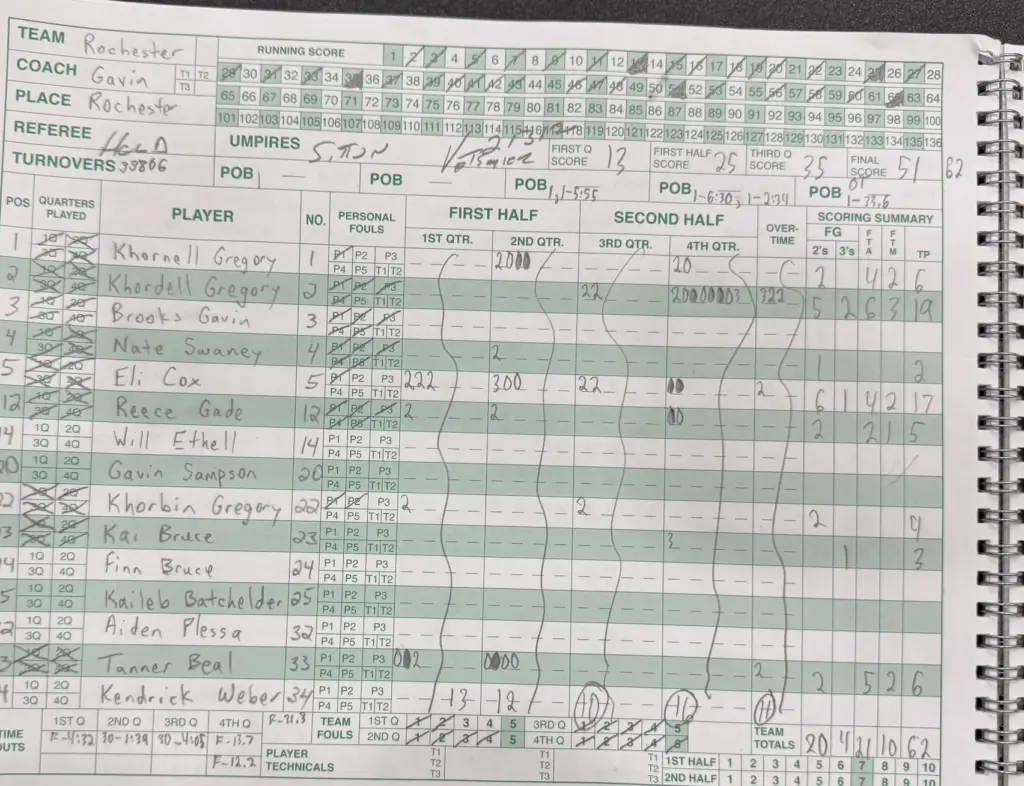 TEAM Rochester RUNNING SCORE 1 2 3 4 5 6 7 8 9 10 11 12 13 14 15 16 17 18 19 20 21 22 23 24 25 26 27 28
COACH Gavin T1 T2 T3 29 30 31 32 33 34 35 36 37 38 39 40 41 42 43 44 45 46 47 48 49 50 51 52 53 54 55 56 57 58 59 60 61 62 63 64
PLACE Rochester 65 66 67 68 69 70 71 72 73 74 75 76 77 78 79 80 81 82 83 84 85 86 87 88 89 90 91 92 93 94 95 96 97 98 99 100
101 102 103 104 105 106 107 108 109 110 111 112 113 114 115 116 117 118 119 120 121 122 123 124 125 126 127 128 129 130 131 132 133 134 135 136
REFEREE HELD UMPIRES FIRST Q SCORE 13 FIRST HALF SCORE 25 THIRD Q SCORE 35 FINAL SCORE 51 62
TURNOVERS POB POB POB 1,1-5:55 POB 1-6:30, 1-2:34 POB OT
POS QUARTERS PLAYED PLAYER NO. PERSONAL FOULS FIRST HALF SECOND HALF OVER-TIME SCORING SUMMARY
1ST QTR. 2ND QTR. 3RD QTR. 4TH QTR. FG 2's 3's FTA FTM TP
1 1Q 2Q 3Q 4Q Khornell Gregory 1 P1 P2 P3 P4 P5 T1 T2 2000 20 2 4 2 6
2 1Q 2Q 3Q 4Q Khordell Gregory 2 P1 P2 P3 P4 P5 T1 T2 22 20000003 322 5 2 6 3 19
3 1Q 2Q 3Q 4Q Brooks Gavin 3 P1 P2 P3 P4 P5 T1 T2
4 1Q 2Q 3Q 4Q Nate Swaney 4 P1 P2 P3 P4 P5 T1 T2 2 1 2
5 1Q 2Q 3Q 4Q Eli Cox 5 P1 P2 P3 P4 P5 T1 T2 222 300 22 00 2 6 1 4 2 17
12 1Q 2Q 3Q 4Q Reece Gade 12 P1 P2 P3 P4 P5 T1 T2 2 2 00 2 2 1 5
14 1Q 2Q 3Q 4Q Will Ethell 14 P1 P2 P3 P4 P5 T1 T2
20 1Q 2Q 3Q 4Q Gavin Sampson 20 P1 P2 P3 P4 P5 T1 T2
22 1Q 2Q 3Q 4Q Khorbin Gregory 22 P1 P2 P3 P4 P5 T1 T2 2 2 2 4
3 1Q 2Q 3Q 4Q Kai Bruce 23 P1 P2 P3 P4 P5 T1 T2 3 1 3
4 1Q 2Q 3Q 4Q Finn Bruce 24 P1 P2 P3 P4 P5 T1 T2
5 1Q 2Q 3Q 4Q Kaileb Batchelder 25 P1 P2 P3 P4 P5 T1 T2
2 1Q 2Q 3Q 4Q Aiden Plessa 32 P1 P2 P3 P4 P5 T1 T2
3 1Q 2Q 3Q 4Q Tanner Beal 33 P1 P2 P3 P4 P5 T1 T2 002 0000 2 2 5 2 6
4 1Q 2Q 3Q 4Q Kendrick Weber 34 P1 P2 P3 P4 P5 T1 T2 13 12 10 16 11
TIME OUTS 1ST Q 2ND Q 3RD Q 4TH Q F-21.3 TEAM FOULS 1ST Q 1 2 3 4 5 3RD Q 1 2 3 4 5 TEAM TOTALS 20 4 21 10 62
F-4:32 30-1:39 30-4:05 F-13.7 2ND Q 1 2 3 4 5 4TH Q 1 2 3 4 5
F-12.2 PLAYER TECHNICALS T1 T2 T3 T1 T2 T3 1ST HALF 1 2 3 4 5 6 7 8 9 10
2ND HALF 1 2 3 4 5 6 7 8 9 10